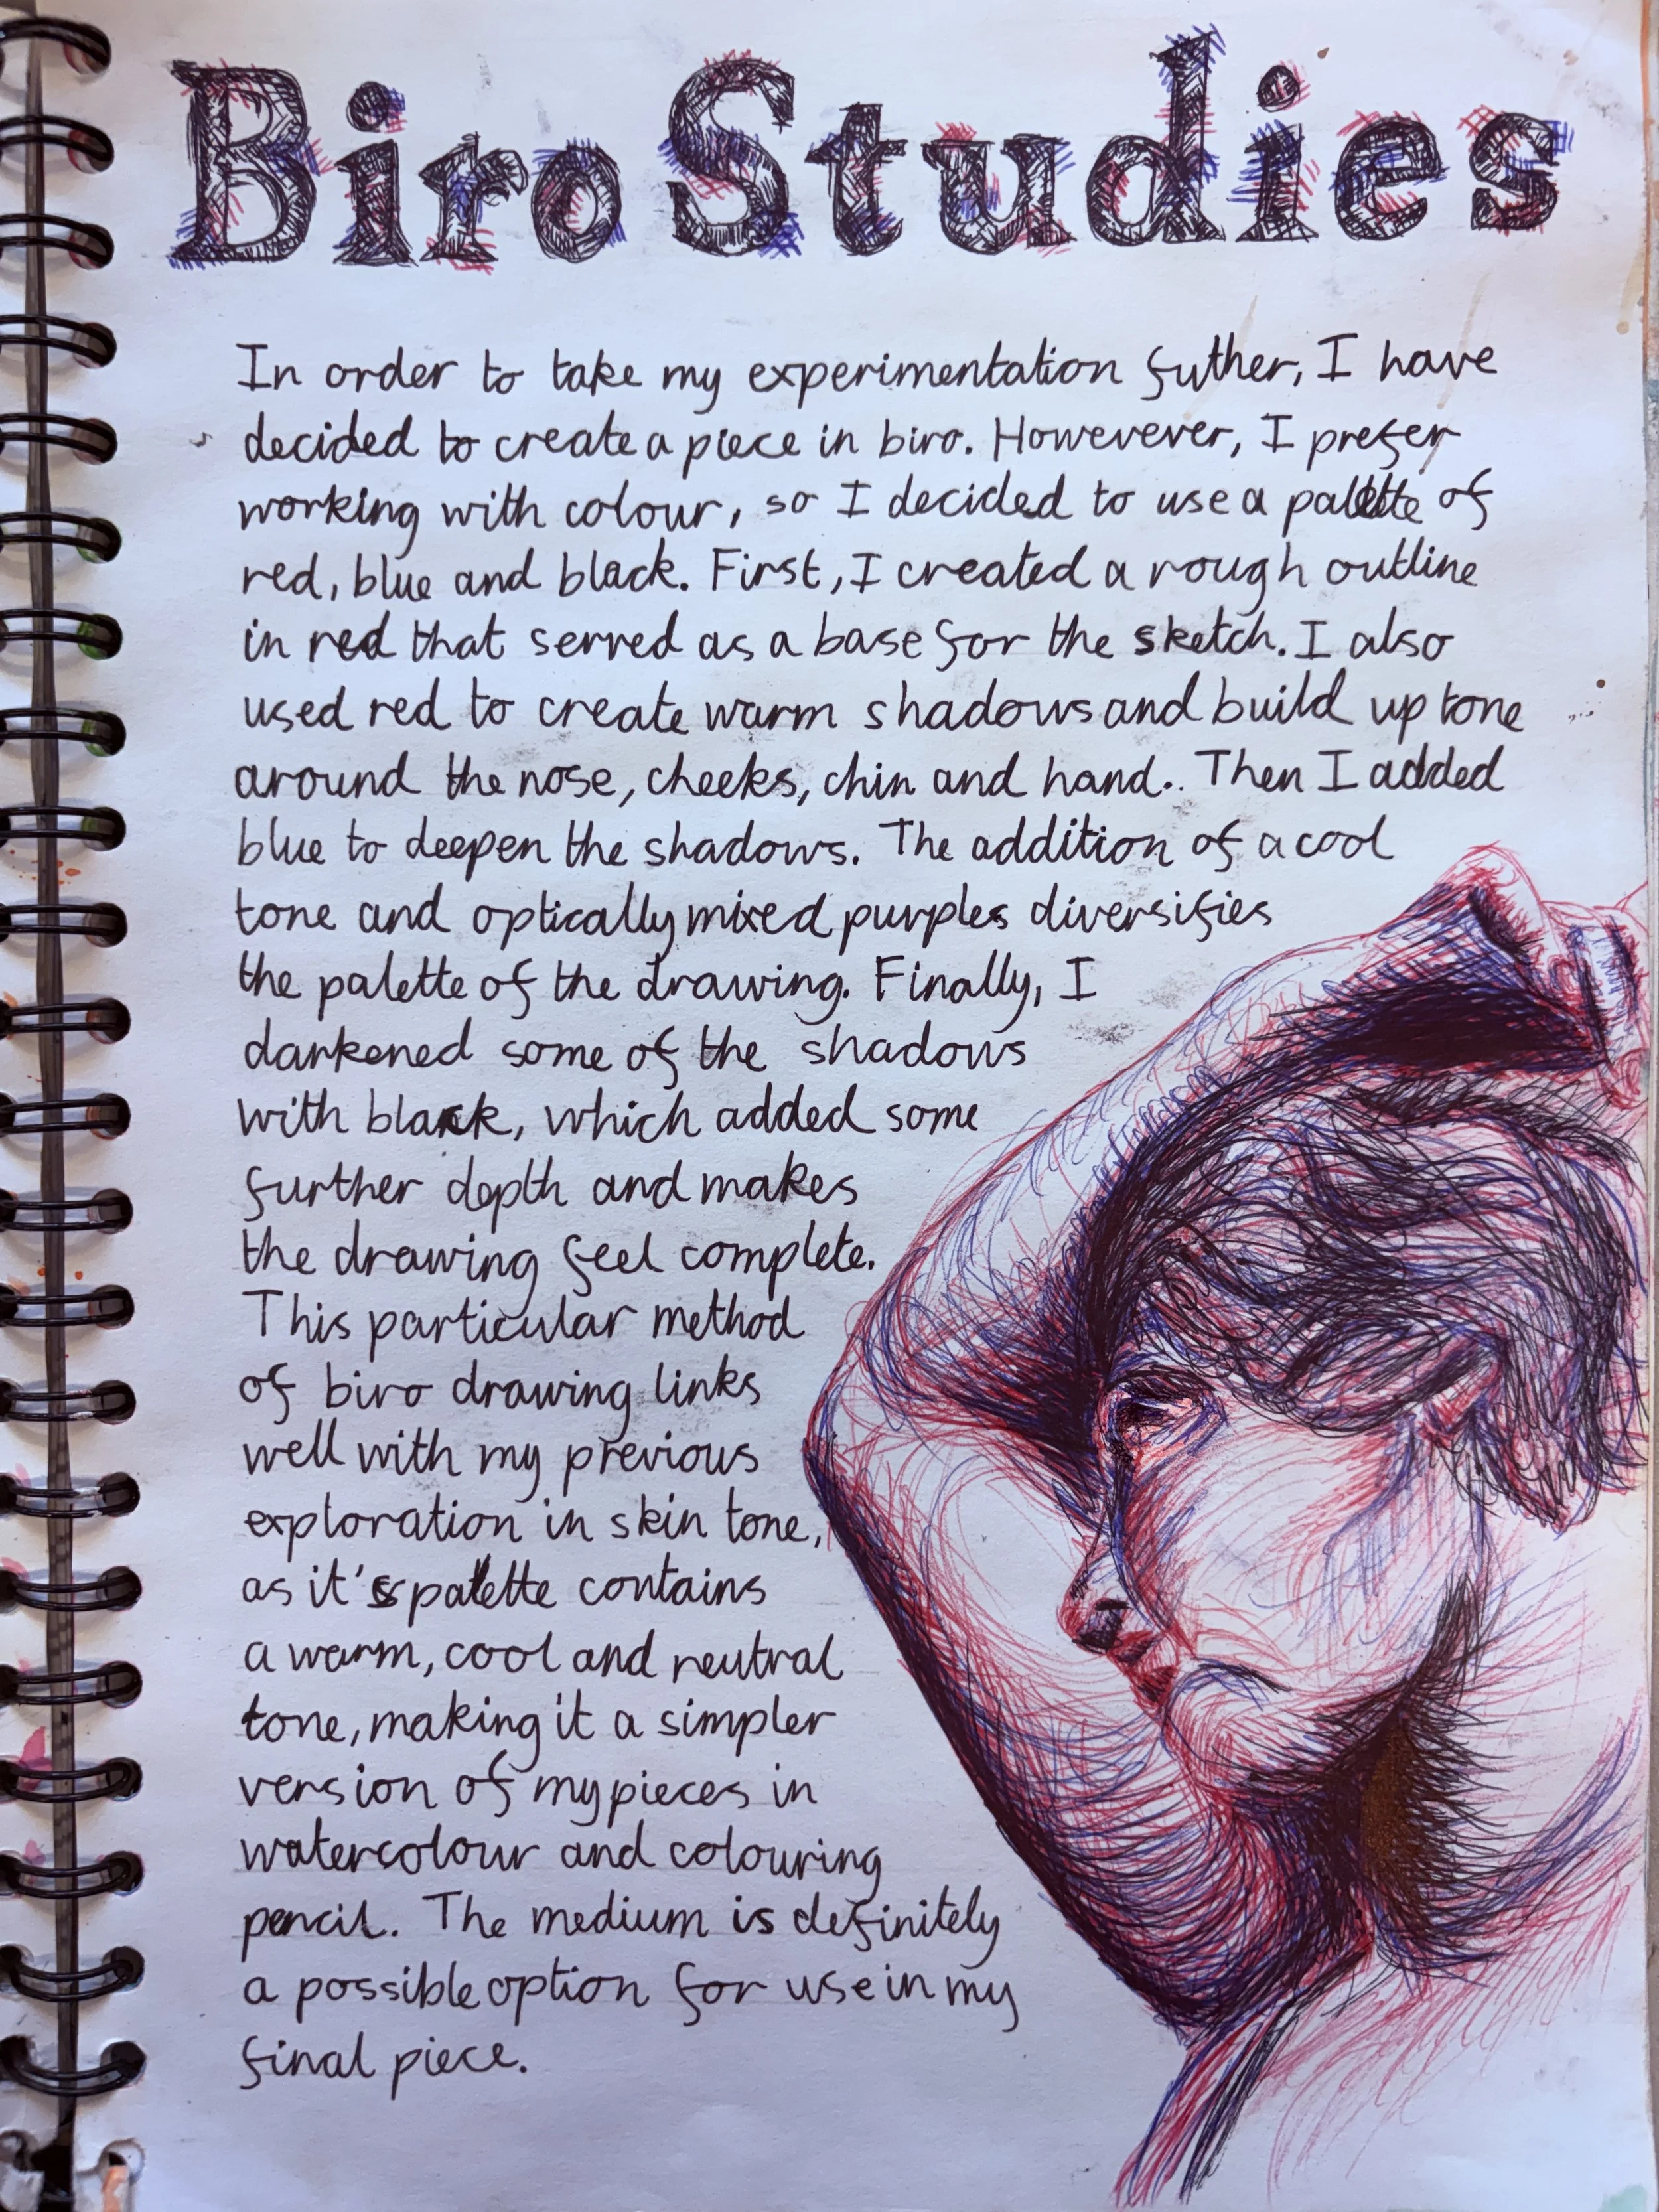 Biro Studies
In order to take my experimentation futher, I have
decided to create a piece in biro. Howerever, I prefer
working with colour, so I decided to use a palette of
red, blue and black. First, I created a rough outline
in red that served as a base for the sketch. I also
used red to create warm shadows and build up tone
around the nose, cheeks, chin and hand.. Then I added
blue to deepen the shadows. The addition of a cool
tone and optically mixed purples diversifies
the palette of the drawing. Finally, I
darkened some of the shadows
with black, which added some
further depth and makes
the drawing feel complete.
This particular method
of biro drawing links
well with my previous
exploration in skin tone,
as it's palette contains
a warm, cool and neutral
tone, making it a simpler
version of my pieces in
watercolour and colouring
pencil. The medium is definitely
a possible option for use in my
final piece.